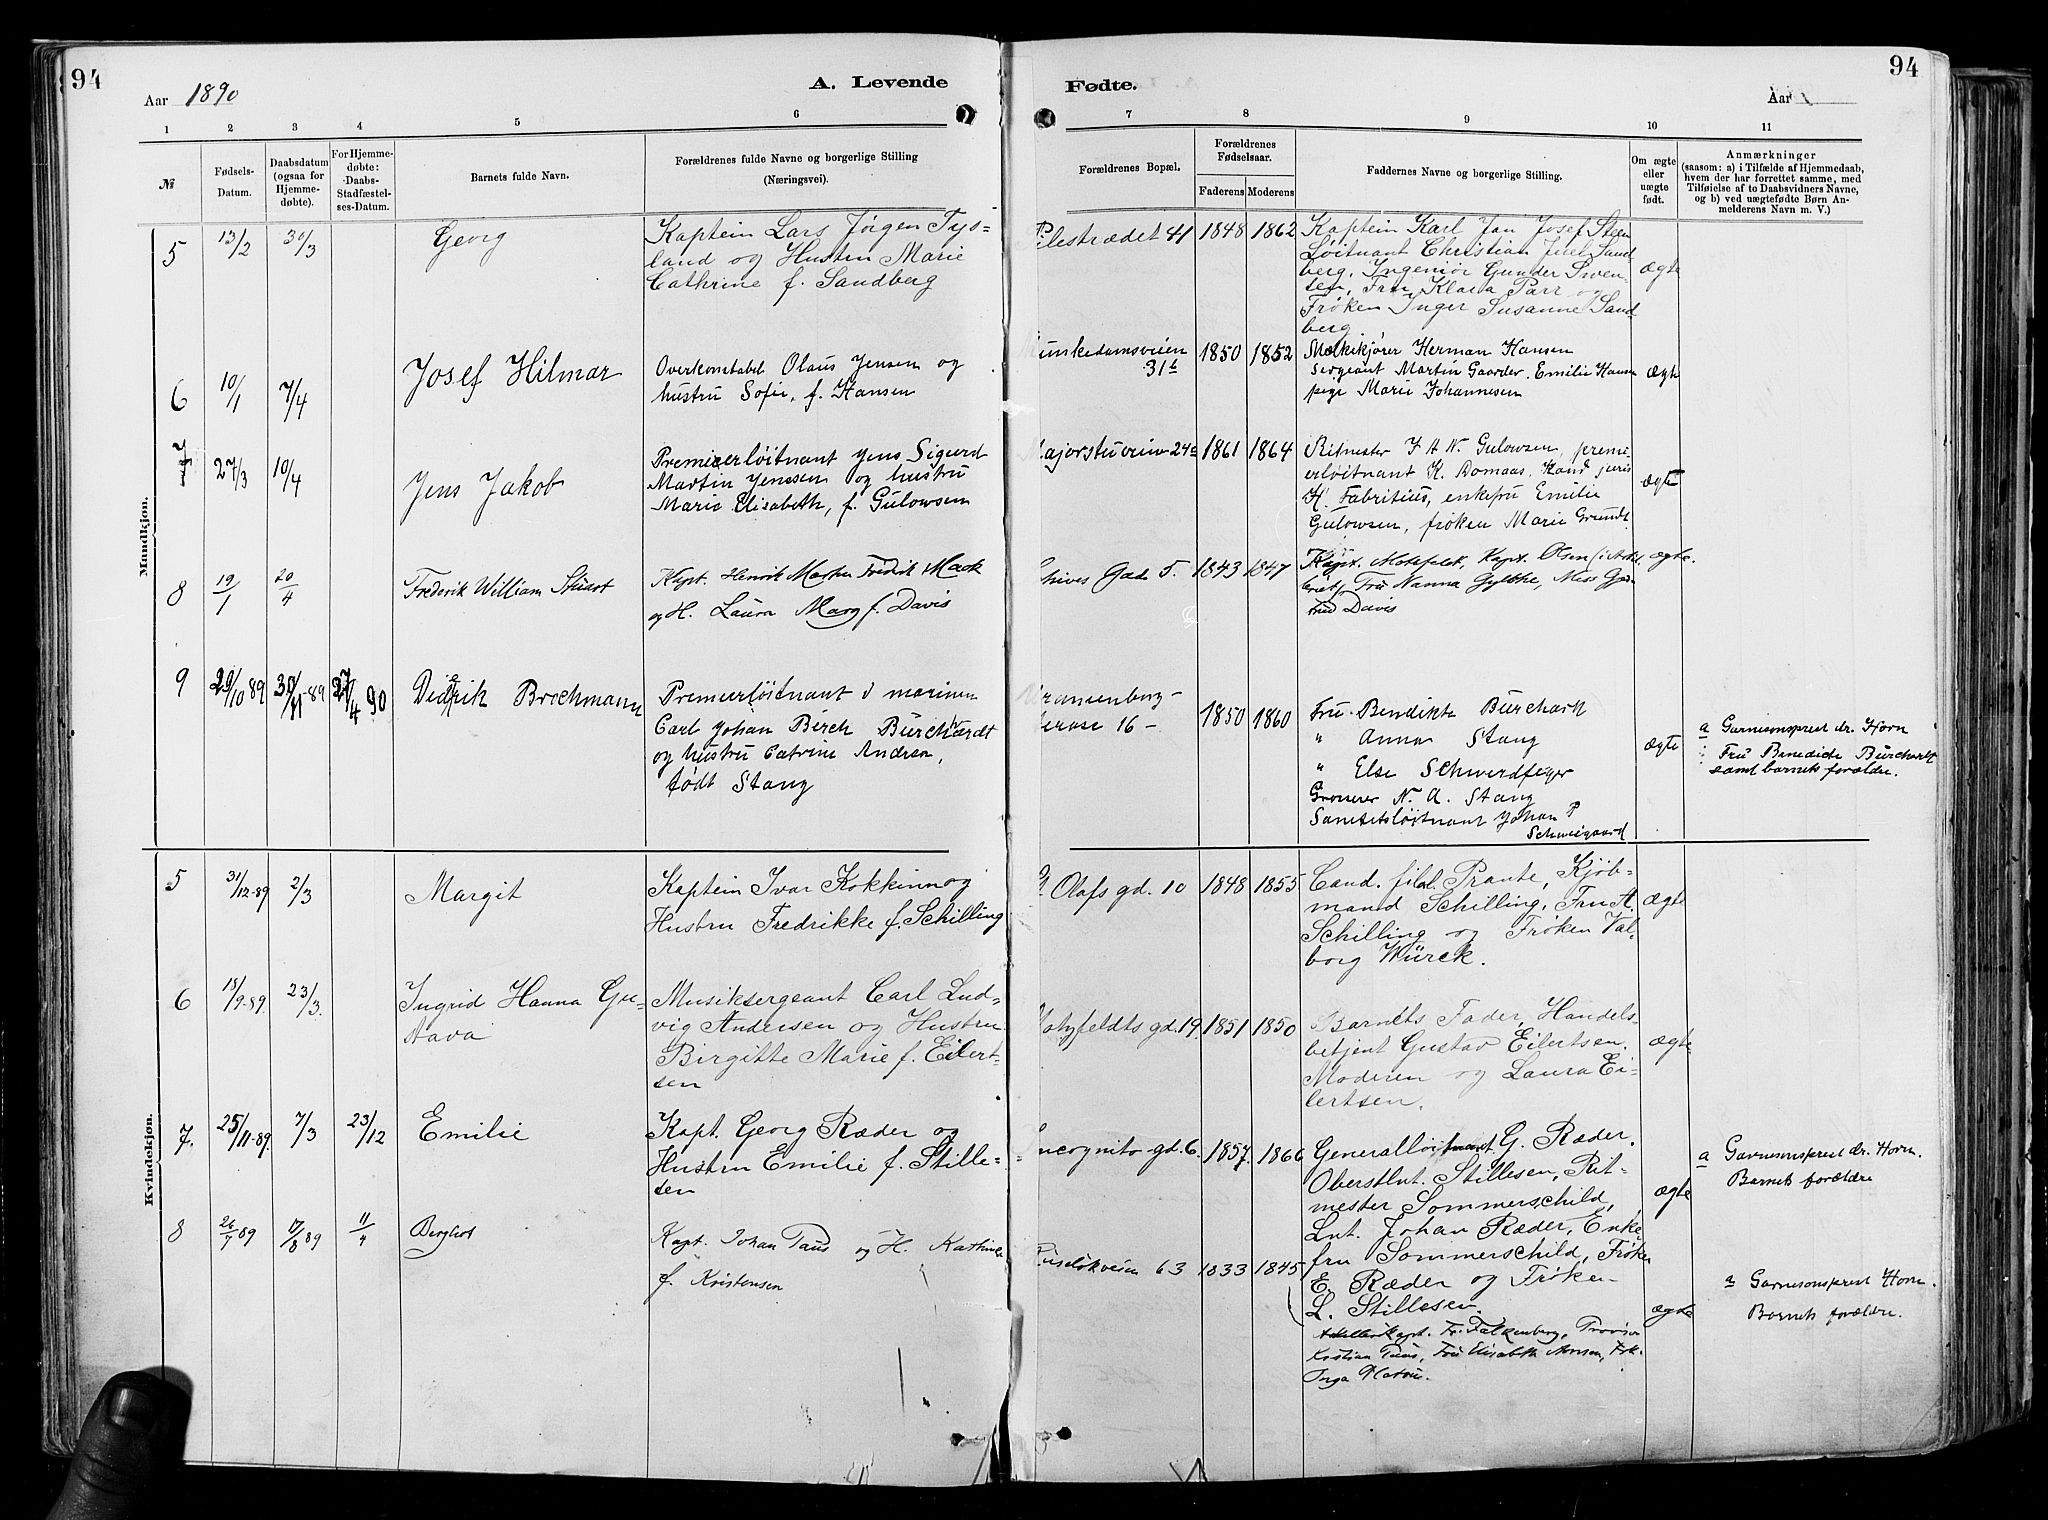 94
A. Levende
Aar 1890
1 2 3 4 5 6
№
Fødsels-Datum.
Daabsdatum (ogsaa for Hjemme-døbte).
For Hjemme-døbte: Daabs-Stadfæstel-ses-Datum.
Barnets fulde Navn.
Forældrenes fulde Navne og borgerlige Stilling (Næringsvei).
Fødte.
94
Aar
7 8 9 10 11
Forældrenes Bopæl.
Forældrenes Fødselsaar.
Faderens Moderens
Faddernes Navne og borgerlige Stilling.
Om ægte eller uægte født.
Anmærkninger
(saasom: a) i Tilfælde af Hjemmedaab, hvem der har forrettet samme, med Tilføielse af to Daabsvidners Navne, og b) ved uægtefødte Børn An-melderens Navn m. V.)
Mandkjøn.
5 13/2 30/3 Georg
Kaptein Lars Jørgen Tys-
land og Hustru Marie
Cathrine f. Sandberg
Pilestrædet 41 1848 1862
Kaptein Karl Jan Josef Steen
Løitnant Christian Juel Sand
berg, Ingeniør Gunder Swen-
sen, Fru Klara Parr og
Frøken Inger Susanne Sand-
berg
ægte
6 10/1 7/4 Josef Hilmar
Overkonstabel Olaus Jensen og
hustru Sofie, f. Hansen
Munkedamsveien
31b 1850 1852
Melkekjører Herman Hansen
Sergeant Martin Gaarder. Emilie Hansen
pige Marie Johannesen
ægte
7 27/3 10/4 Jens Jakob
Premierløitnant Jens Sigurd
Martin Jenssen og hustru
Marie Elisabeth, f. Gulowsen
Majorstuveien 24a 1861 1864
Ritmester J A W. Gulowsen, premi-
erløitnant K. Bomaas, Kand juris
H. Fabritius, enkefru Emilie
Gulowsen, frøken Marie Grundt
ægte
8 19/1 20/4 Frederik William Stuart
Kapt. Henrik Morten Fredrik Mack
og H. Laura Mary f. Davis
Gade 5. 1843 1847
Kapt. Motzfeldt, Kapt. Olsen
Fru Nanna Gyltke, Miss
Davis
ægte.
9 29/10 89 30/11-89 27/4 90 Didrik Brochmann
Premierløitnant i marinen
Carl Johan Birch Burchardt
og hustru Catrine Andrea,
født Stang
16 – 1850 1860
Fru Benedikte Burchardt
" Anna Stang
" Else Schwerdfeger
Grosserer N. A. Stang
Sanitetsløitnant Johan P
Schweigaard
ægte
a Garnisonsprest dr. Horn
Fru Benedicte Burchardt
samt barnets forældre.
Kvindekjøn.
5 31/12-89 2/3 Margit
Kaptein Ivar Kokkinn og
Hustru Fredrikke f. Schilling
St Olafs gd. 10 1848 1855
Cand. filol. Prante, Kjøb-
mand Schilling, Fru A.
Schilling og Frøken Val-
borg Würck.
ægte
6 18/9-89. 23/3. Ingrid Hanna Gu-
stava
Musiksergeant Carl Lud-
vig Andersen og Hustru
Birgitte Marie f. Eilert-
sen
Hatyfeldts gd. 19. 1851 1850
Barnets Fader, Handels-
betjent Gustav Eilertsen.
Moderen og Laura Ei-
lertsen.
ægte
7. 25/11-89. 7/3 23/12 Emilie
Kapt. Georg Ræder og
Hustru Emilie f. Stille-
sen
Incognito gd. 6. 1857. 1866
Generalløitnant G. Ræder.
Oberstlnt. Stillesen, Rit-
mester Sommerschild,
Lnt. Johan Ræder, Enke-
fru Sommerschild, Frøken
E. Ræder og Frøken
L. Stillesen.
ægte
a Garnisonsprest dr. Horn.
Barnets forældre
8 26/7 89 17/8 89 11/4 Bergliot
Kapt. Johan Taus og H. Kathinka
f. Kristensen
Ruseløkveien 63 1833 1845
Kapt. Fr. Falkenberg,
Kristian Taus, Fru Elisabeth Frk.
Inga
ægte
a Garnisonsprest Horn.
Barnets forældre.